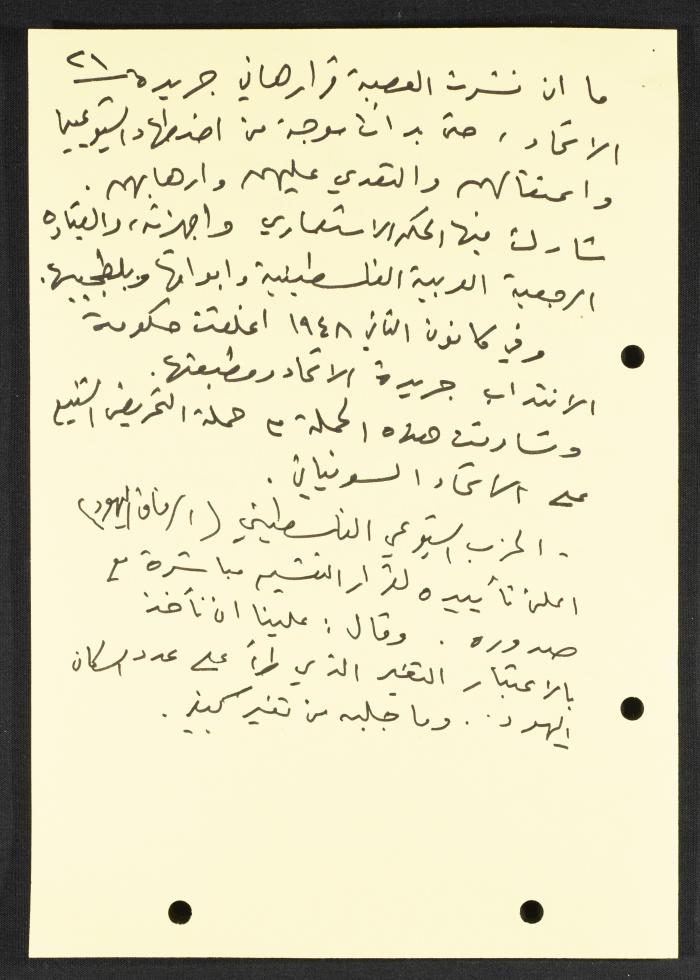 ٢١
ما ان نشرت العصبة قرارها في جريدة
الاتحاد ، حتى بدأت موجة من اضطهاد الشيوعيين
واعتقالهم والتعدي عليهم وارهابهم .
شاركت فيها الحكم الاستعماري واجهزته، والقيادة
الرجعية العربية الفلسطينية وابواقها وبلطجييها.
وفي كانون الثاني ١٩٤٨ اغلقت حكومة
الانتداب جريدة الاتحاد ومطبعتها.
وشاركت هذه الحملة مع حملة التحريض الشنيع
على الاتحاد السوفياتي .
- الحزب الشيوعي الفلسطيني (الرفاق اليهود)
اعلن تأييده لقرار التقسيم مباشرة مع
صدوره . وقال : علينا ان نأخذ
بالاعتبار التغير الذي طرأ على عدد السكان
اليهود .. وما جلبه من تغير كبير .